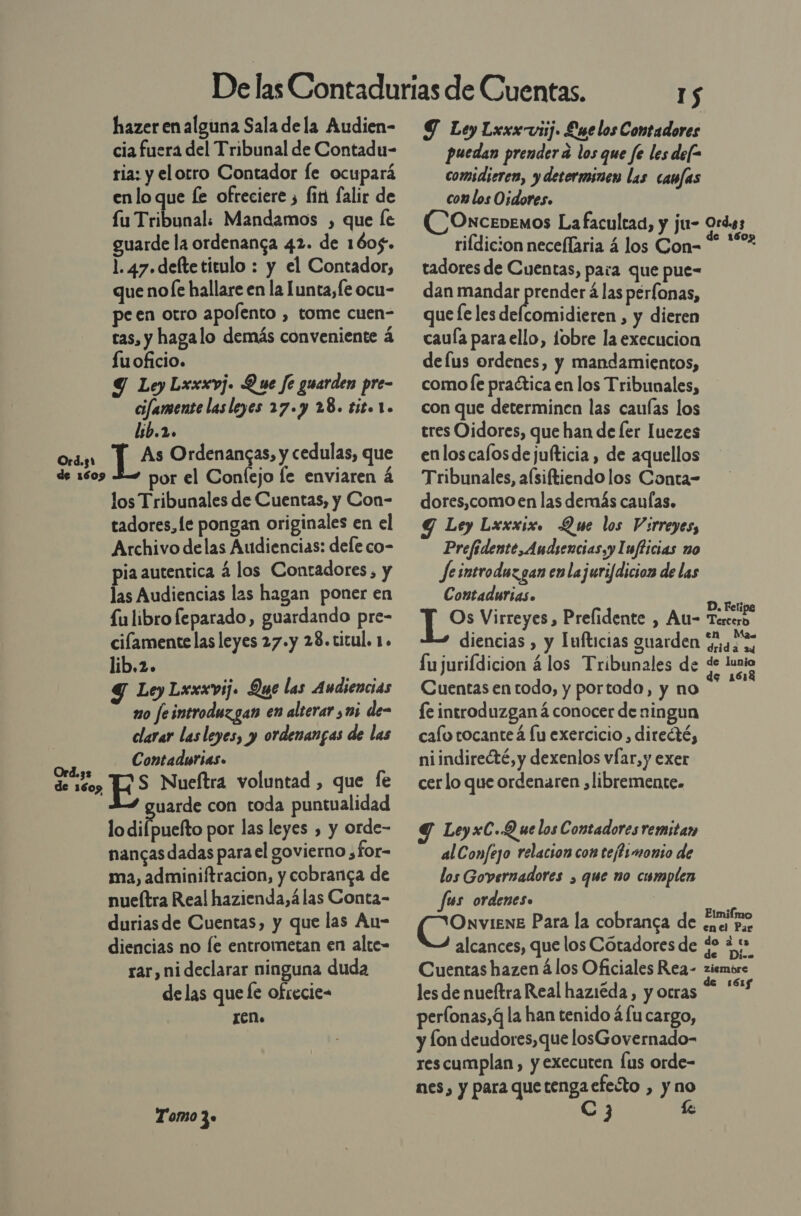 De las Contadurias de Cuentas. 15
hazer en alguna Sala de la Audien-
cia fuera del Tribunal de Contadu-
ria: y el otro Contador ſe ocupará
en lo que ſe ofreciere, ſin ſalir de
ſu Tribunal: Mandamos, que ſe
guarde la ordenança 42. de 1605.
l. 47. deſte titulo: y el Contador,
que no ſe hallare en la Iunta, ſe ocu-
pe en otro apoſento, tome cuen-
tas, y haga lo demás conveniente á
ſu oficio.
¶ Ley Lxxxvj. Que ſe guarden pre-
ciſamente las leyes 27. y 28. tit. 1.
lib. 2.
Ord. 31
de 1609
LAs Ordenanças, y cedulas, que
por el Conſejo ſe enviaren á
los Tribunales de Cuentas, y Con-
tadores, ſe pongan originales en el
Archivo de las Audiencias: deſe co-
pia autentica á los Contadores, y
las Audiencias las hagan poner en
ſu libro ſeparado, guardando pre-
ciſamente las leyes 27. y 28. titul. 1.
lib. 2.
¶ Ley Lxxxvij. Que las Audiencias
no ſe introduzgan en alterar, ni de-
clarar las leyes, y ordenanças de las
Contadurias.
Ord. 32
de 1609
ES Nueſtra voluntad, que ſe
guarde con toda puntualidad
lo diſpueſto por las leyes, y orde-
nanças dadas para el govierno, for-
ma, adminiſtracion, y cobrança de
nueſtra Real hazienda, á las Conta-
durias de Cuentas, y que las Au-
diencias no ſe entrometan en alte-
rar, ni declarar ninguna duda
de las que ſe ofrecie-
ren.
Tomo 3.
¶ Ley Lxxxviij. Que los Contadores
puedan prender à los que ſe les deſ-
comidieren, y determinen las cauſas
con los Oidores.
COncedemos La facultad, y ju-
riſdicion neceſſaria á los Con-
tadores de Cuentas, para que pue-
dan mandar prender á las perſonas,
que ſe les deſcomidieren, y dieren
cauſa para ello, ſobre la execucion
de ſus ordenes, y mandamientos,
como ſe practica en los Tribunales,
con que determinen las cauſas los
tres Oidores, que han de ſer Iuezes
en los caſos de juſticia, de aquellos
Tribunales, aſsiſtiendo los Conta-
dores, como en las demás cauſas.
Ord. 33
de 1609
¶ Ley Lxxxix. Que los Virreyes,
Preſidente, Audiencias, y Iuſticias no
ſe introduzgan en la juriſdicion de las
Contadurias.
LOs Virreyes, Preſidente, Au-
diencias, y Iuſticias guarden
ſu juriſdicion á los Tribunales de
Cuentas en todo, y por todo, y no
ſe introduzgan á conocer de ningun
caſo tocante á ſu exercicio, directé,
ni indirecté, y dexenlos vſar, y exer
cer lo que ordenaren, libremente.
D. Felipe
Tercero
en Ma-
drid a 24
de Iunio
de 1618
¶ Ley xC. Que los Contadores remitan
al Conſejo relacion con teſtimonio de
los Governadores, que no cumplen
ſus ordenes.
COnviene Para la cobrança de
alcances, que los Cõtadores de
Cuentas hazen á los Oficiales Rea-
les de nueſtra Real haziẽda, y otras
perſonas, q̃ la han tenido á ſu cargo,
y ſon deudores, que los Governado-
res cumplan, y executen ſus orde-
nes, y para que tenga efecto, y no
El miſmo
en el Par
do à
de Di-
ziembre
de 1615
C 3 ſe